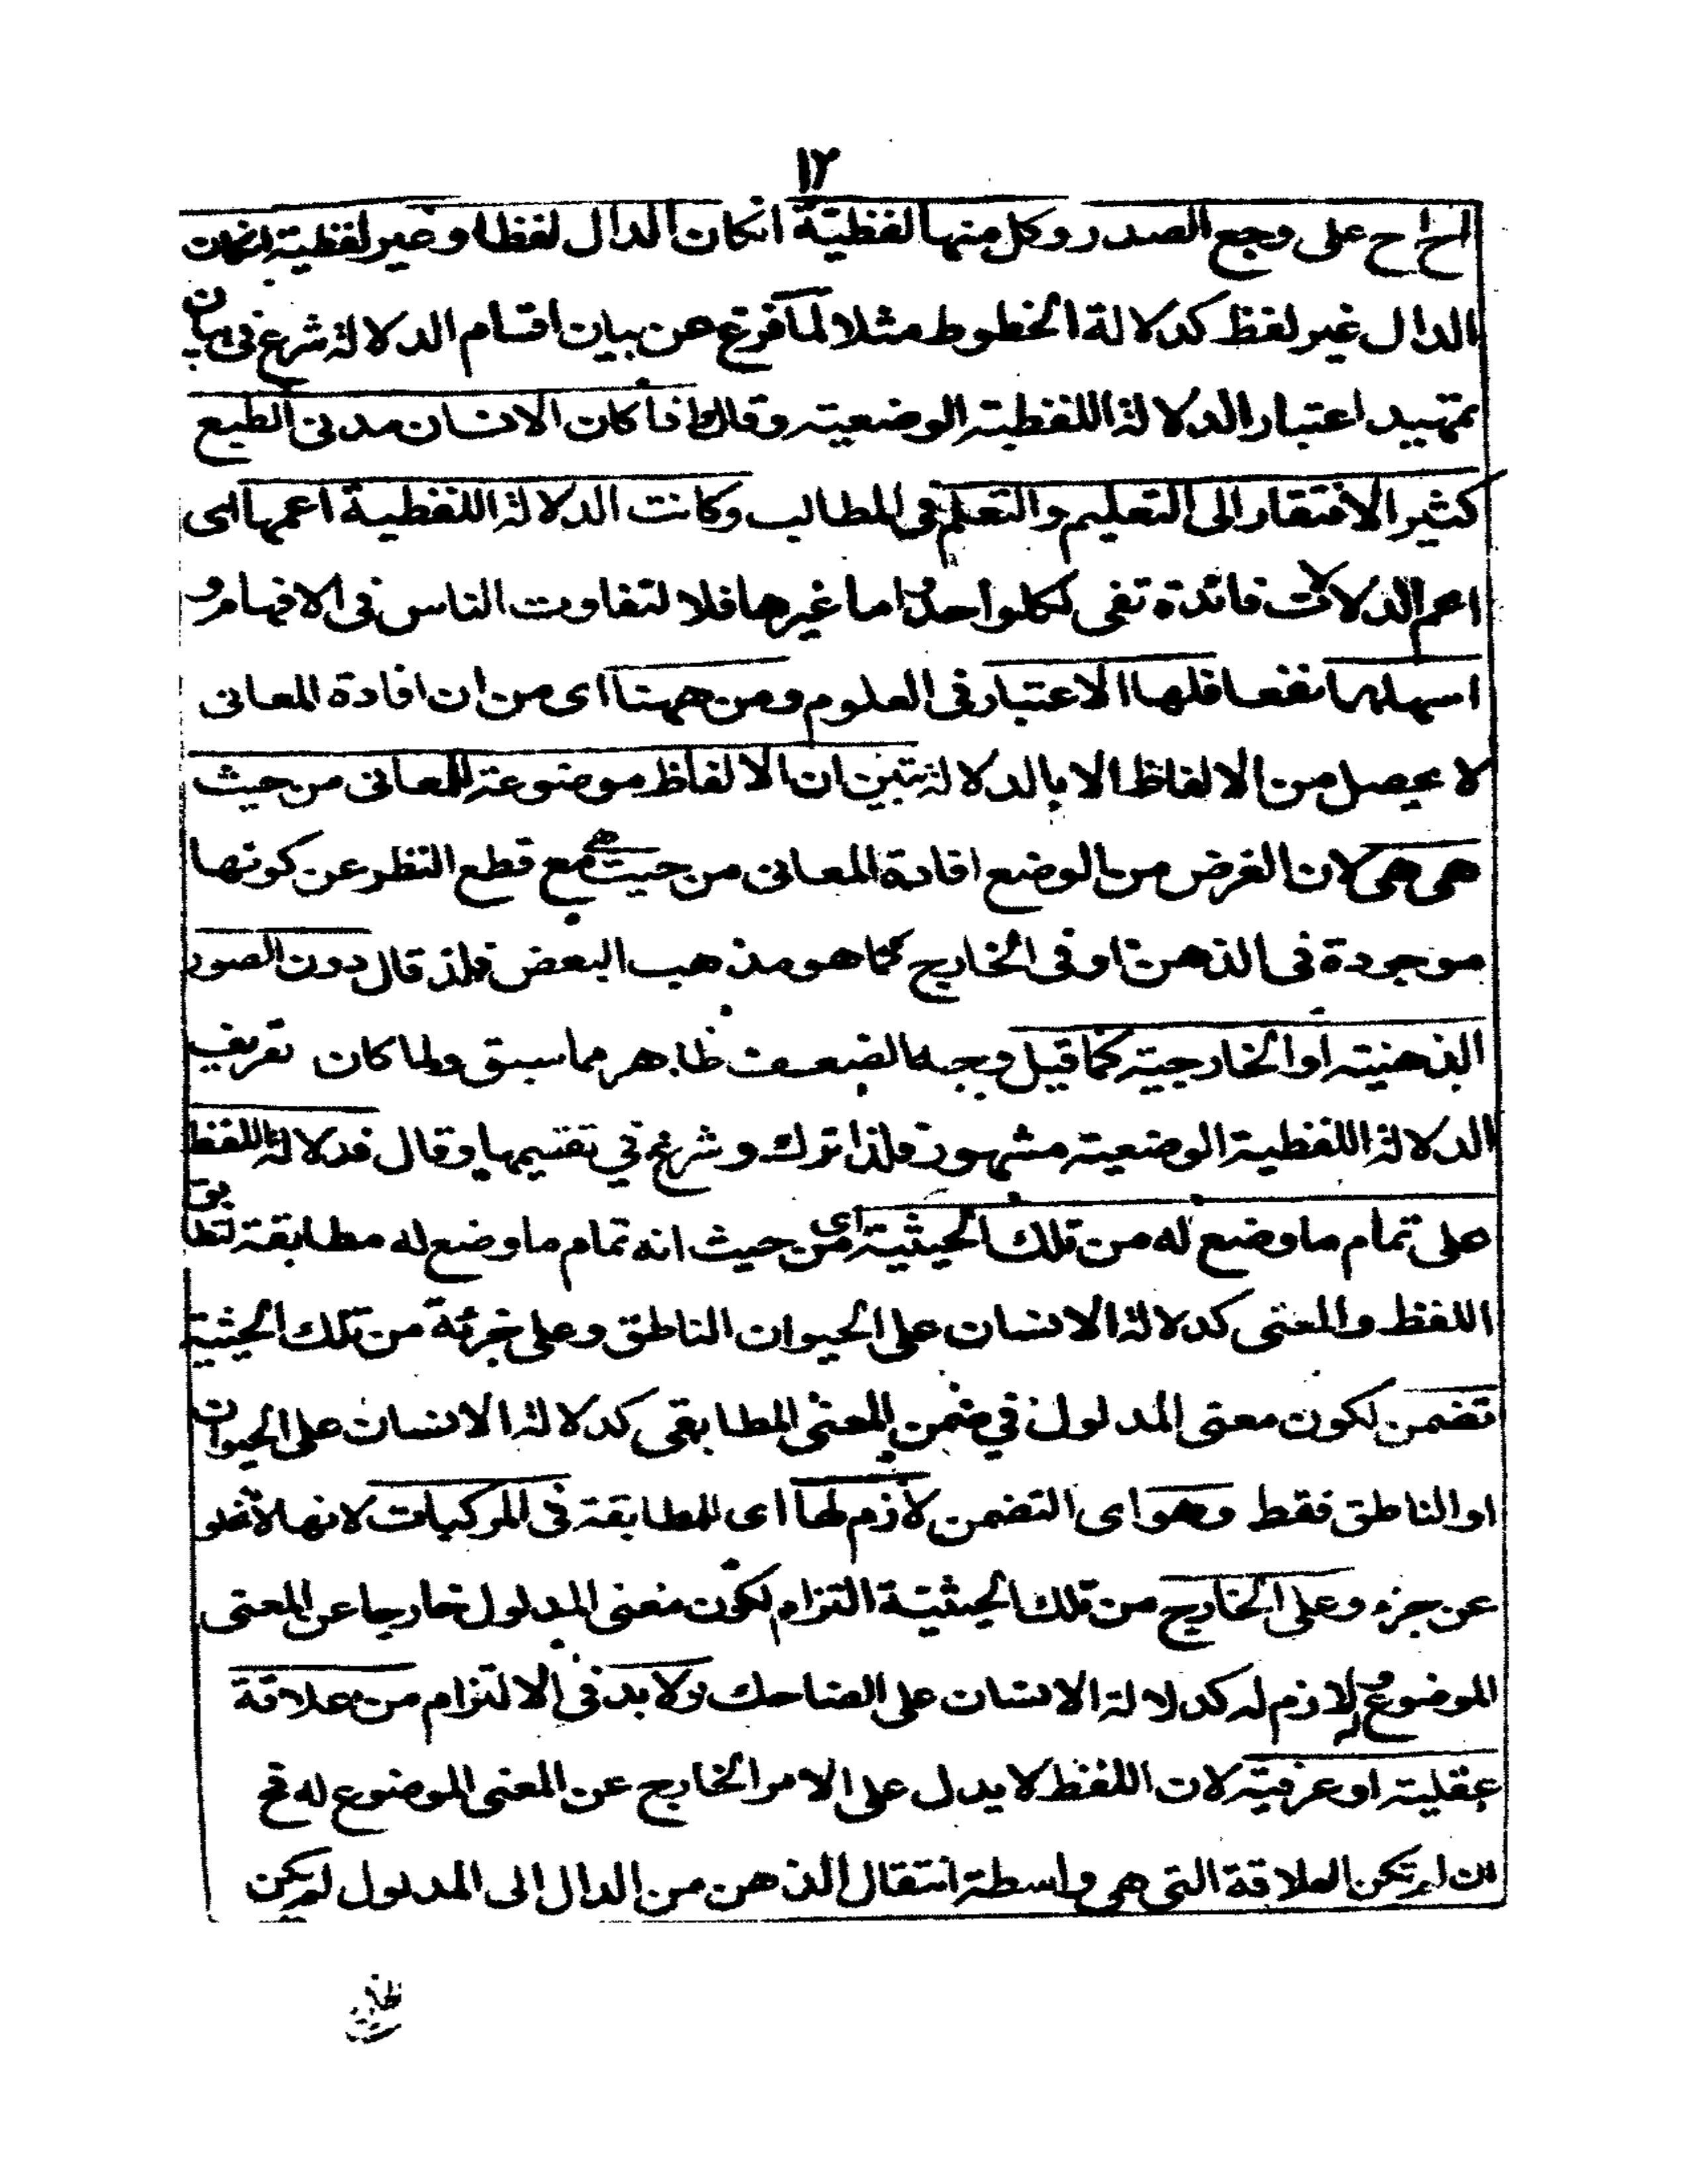 ١٢
اح اح على وجع الصدر وكل منها لفظية انكان الدال لفظا وغير لفظية انكان
الدال غير لفظ كدلالة الخطوط مثلا لما فرغ عن بيان اقسام الدلالة شرع فى بيان
تمهيد اعتبار الدلالة اللفظية الوضعية وقال واذا كان الانسان مدنى الطبع
كثير الافتقار الى التعليم والتعلم فى المطالب وكانت الدلالة اللفظية اعمها اى
اعم الدلالات فائدة تفى لكل واحد اما غيرها فلا لتفاوت الناس فى الافهام و
اسهلها نفعا فلها الاعتبار فى العلوم ومن ههنا اى من ان افادة المعانى
لا يحصل من الالفاظ الا بالدلالة تبين ان الالفاظ موضوعة للمعانى من حيث
هى هى لان الغرض من الوضع افادة المعانى من حيث هى مع قطع النظر عن كونها
موجودة فى الذهن او فى الخارج كما هو مذهب البعض فلذ قال دون الصور
الذهنية او الخارجية كما قيل وجه الضعف ظاهر مما سبق ولما كان تعريف
الدلالة اللفظية الوضعية مشهورة فلذا ترك وشرع في تقسيمها وقال فدلالة اللفظ
على تمام ما وضع له من تلك الحيثية اى من حيث انه تمام ما وضع له مطابقة لتطابق
اللفظ والمعنى كدلالة الانسان على الحيوان الناطق وعلى جزئه من تلك الحيثية
تضمن لكون معنى المدلول في ضمن المعنى المطابقى كدلالة الانسان على الحيوان
او الناطق فقط وهو اى التضمن لازم لها اى للمطابقة فى المركبات لانها لا تخلو
عن جزء وعلى الخارج من تلك الحيثية التزام لكون معنى المدلول خارجا عن المعنى
الموضوع له لازم له كدلالة الانسان على الضاحك ولا بد فى الالتزام من علاقة
عقلية او عرفية لان اللفظ لا يدل على الامر الخارج عن المعنى الموضوع له فح
ان لم تكن العلاقة التى هى واسطة انتقال الذهن من الدال الى المدلول لم يكن